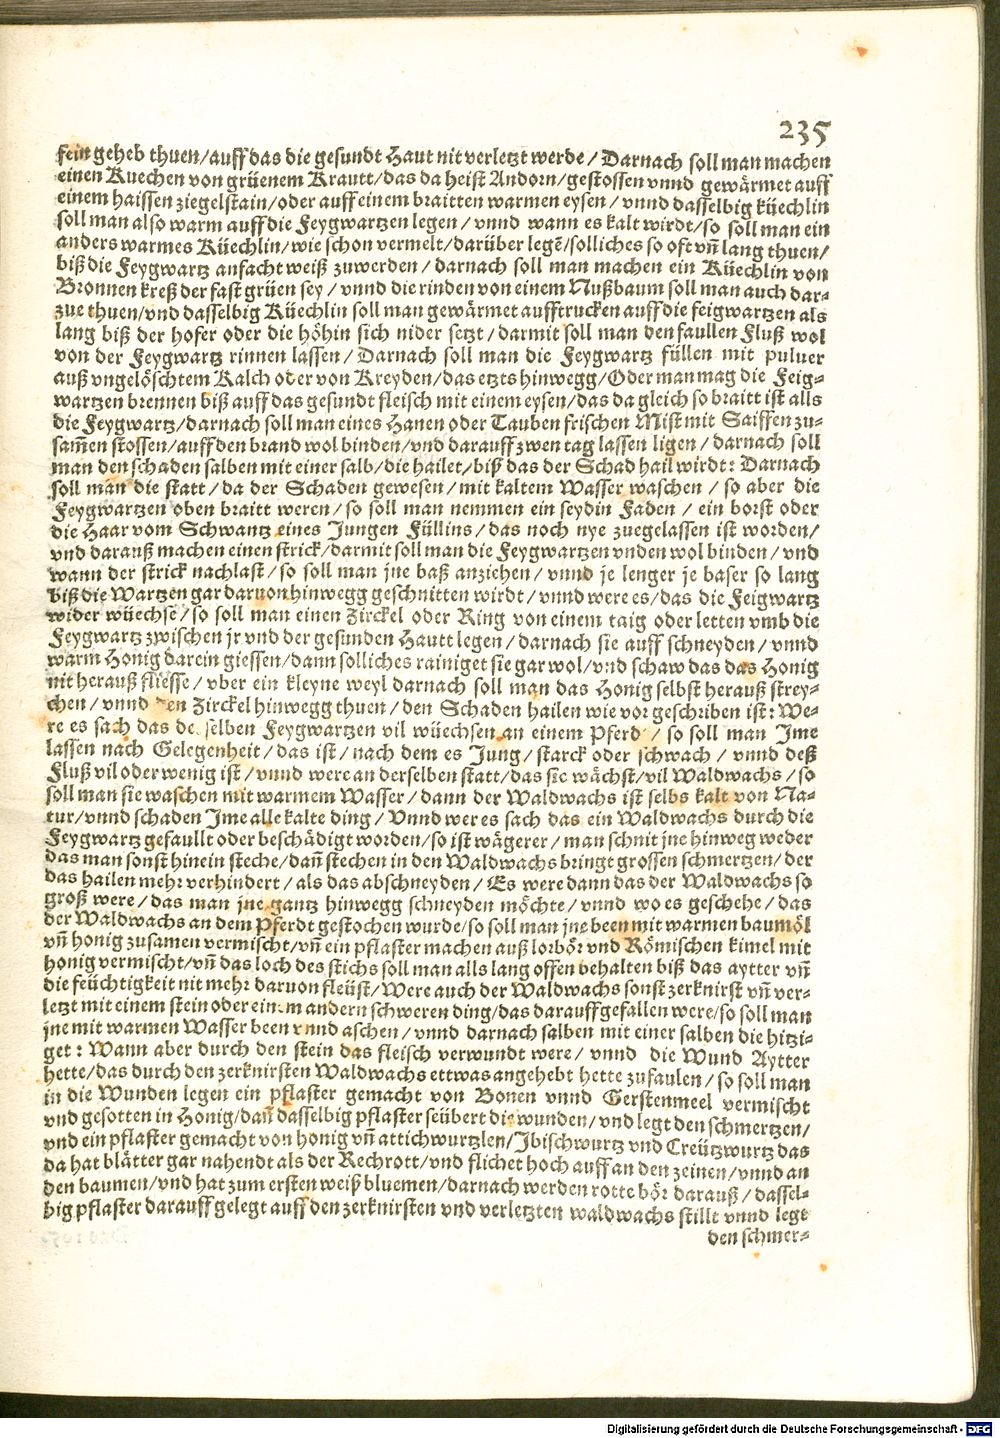 235
fein geheb thuen/auff das die gesundt Haut nit verletzt werde/Darnach soll man machen
einen Kuechen von grüenem Krautt/das da heist Andorn/gestossen vnnd gewärmet auff
einem haissen ziegelstain/oder auff einem braitten warmen eysen/vnnd dasselbig küechlin
soll man also warm auff die Feygwartzen legen/vnnd wann es kalt wirdt/so soll man ein
anders warmes Küechlin/wie schon vermelt/darüber legē/solliches so oft vn̄ lang thuen/
biß die Feygwartz anfacht weiß zuwerden/darnach soll man machen ein Küechlin von
Bronnen kreß der fast grüen sey/vnnd die rinden von einem Nußbaum soll man auch dar-
zue thuen/vnd dasselbig Küechlin soll man gewärmet aufftrucken auff die feigwartzen als
lang biß der hofer oder die höhin sich nider setzt/darmit soll man den faullen Fluß wol
von der Feygwartz rinnen lassen/Darnach soll man die Feygwartz füllen mit puluer
auß vngelöschtem Kalch oder von Kreyden/das etzts hinwegg/Oder man mag die Feig-
wartzen brennen biß auff das gesundt fleisch mit einem eysen/das da gleich so braitt ist alls
die Feygwartz/darnach soll man eines Hanen oder Tauben frischen Mist mit Saiffen zu-
sam̄en stossen/auff den brand wol binden/vnd darauff zwen tag lassen ligen/darnach soll
man den schaden salben mit einer salb/die hailet/biß das der Schad hail wirdt: Darnach
soll man die statt/da der Schaden gewesen/mit kaltem Wasser waschen/so aber die
Feygwartzen oben braitt weren/so soll man nemmen ein seydin Faden/ein borst oder
die Haar vom Schwantz eines Jungen Füllins/das noch nye zuegelassen ist worden/
vnd darauß machen einen strick/darmit soll man die Feygwartzen vnden wol binden/vnd
wann der strick nachlast/so soll man jne baß anziehen/vnnd je lenger je baser so lang
biß die Wartzen gar daruon hinwegg geschnitten wirdt/vnnd were es/das die Feigwartz
wider wüechse/so soll man einen Zirckel oder Ring von einem taig oder letten vmb die
Feygwartz zwischen jr vnd der gesunden Hautt legen/darnach sie auff schneyden/vnnd
warm Honig darein giessen/dann solliches rainiget sie gar wol/vnd schaw das das Honig
nit herauß fliesse/vber ein kleyne weyl darnach soll man das Honig selbst herauß strey-
chen/vnnd den Zirckel hinwegg thuen/den Schaden hailen wie vor geschriben ist: We-
re es sach das derselben Feygwartzen vil wüechsen an einem Pferd/so soll man Jme
lassen nach Gelegenheit/das ist/nach dem es Jung/starck oder schwach/vnnd deß
Fluß vil oder wenig ist/vnnd were an derselben statt/das sie wächst/vil Waldwachs/so
soll man sie waschen mit warmem Wasser/dann der Waldwachs ist selbs kalt von Na-
tur/vnnd schaden Jme alle kalte ding/Vnnd wer es sach das ein Waldwachs durch die
Feygwartz gefaullt oder beschädigt worden/so ist wägerer/man schnit jne hinweg weder
das man sonst hinein steche/dan̄ stechen in den Waldwachs bringt grossen schmertzen/der
das hailen mehr verhindert/als das abschneyden/Es were dann das der Waldwachs so
groß were/das man jne gantz hinwegg schneyden möchte/vnnd wo es geschehe/das
der Waldwachs an dem Pferdt gestochen wurde/so soll man jne been mit warmen baumöl
vn̄ honig zusamen vermischt/vn̄ ein pflaster machen auß lorbör vnd Römischen kimel mit
honig vermischt/vn̄ das loch des stichs soll man alls lang offen behalten biß das aytter vn̄
die feüchtigkeit nit mehr daruon fleüst/Were auch der Waldwachs sonst zerknirst vn̄ ver-
letzt mit einem stein oder einem andern schweren ding/das darauff gefallen were/so soll man
jne mit warmen Wasser been vnnd aschen/vnnd darnach salben mit einer salben die hitzi-
get: Wann aber durch den stein das fleisch verwundt were/vnnd die Wund Aytter
hette/das durch den zerknirsten Waldwachs ettwas angehebt hette zufaulen/so soll man
in die Wunden legen ein pflaster gemacht von Bonen vnnd Gerstenmeel vermischt
vnd gesotten in Honig/dan̄ dasselbig pflaster seübert die wunden/vnd legt den schmertzen/
vnd ein pflaster gemacht von honig vn̄ attichwurtzlen/Jbischwurtz vnd Creützwurtz das
da hat blätter gar nahendt als der Rechrott/vnd flichet hoch auff an den zeinen/vnnd an
den baumen/vnd hat zum ersten weiß bluemen/darnach werden rotte bör darauß/dassel-
big pflaster darauff gelegt auff den zerknirsten vnd verletzten waldwachs stillt vnnd legt
den schmer-
Digitalisierung gefördert durch die Deutsche Forschungsgemeinschaft - DFG